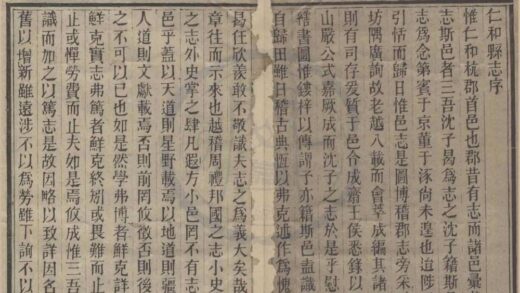 仁和縣志序
惟仁和杭郡首邑也郡昔有志而諸邑彙
志斯邑者三吾沈子曷為志之沈子籍斯
志為念第賓于京重于涿尚未遑也迨陟
引恬而歸曰惟邑志是圖博稽郡志旁采
坊隅廣詢故老越八載而會萃成編其諸
則有司存爰質于邑合成齋王侯悉錄以
山嚴公式嘉厥成而沈子之志於是乎慰
轄書圖惟鋟梓以傳謂子亦籍斯邑盍識
自歸田雖日稽古典恆以弗克述作為懷
曷任欣羨敢不敬識夫志之為義大矣哉
而示來也越稽周禮邦國之志小史
之志外史掌之肆凡遐方小邑罔不有志
邑乎蓋以天道則星野載焉以地道則疆
人道則文獻載焉否則前罔攸徵否則後
之不可已也如是然學弗博者鮮克詳
鮮克實志弗篤者鮮克終剏或畏難而止
止或憚勞費而止夫如是焉攸成惟三吾
識而加之以篤志是故因略以致詳因名
舊以增新雖遠涉不以為勞雖下詢不以